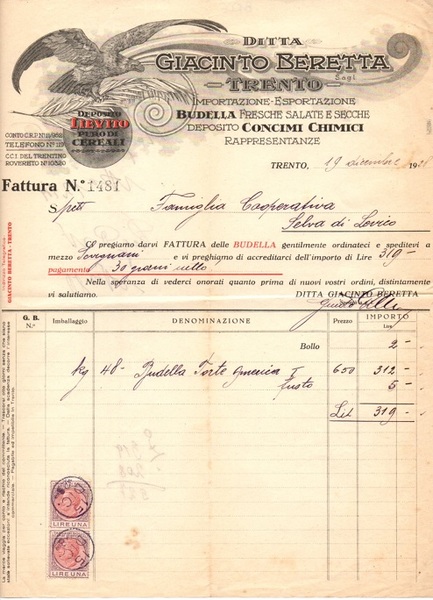 DITTA
GIACINTO BERETTA
TRENTO
IMPORTAZIONE-ESPORTAZIONE
BUDELLA FRESCHE SALATE E SECCHE
DEPOSITO CONCIMI CHIMICI
RAPPRESENTANZE
DEPOSITO
LIEVITO
PURO DI
CEREALI
TRENTO, 19 dicembre 19
Fattura N.° 1481
Spett. Famiglia Cooperativa
Selva di Levico
Vi pregiamo darvi FATTURA delle BUDELLA gentilmente ordinateci e speditevi a
mezzo e vi preghiamo di accreditarci dell'importo di Lire 319-
pagamento 30 giorni netto
Nella speranza di vederci onorati quanto prima di nuovi vostri ordini, distintamente
vi salutiamo. DITTA GIACINTO BERETTA
GIACINTO BERETTA - TRENTO
G. B. N.° Imballaggio DENOMINAZIONE Prezzo IMPORTO
Lire
Bollo 2-
kg 48- Budella Torte America I 6.50 312-
fusto 5-
Lit 319-
LIRE UNA
LIRE UNA